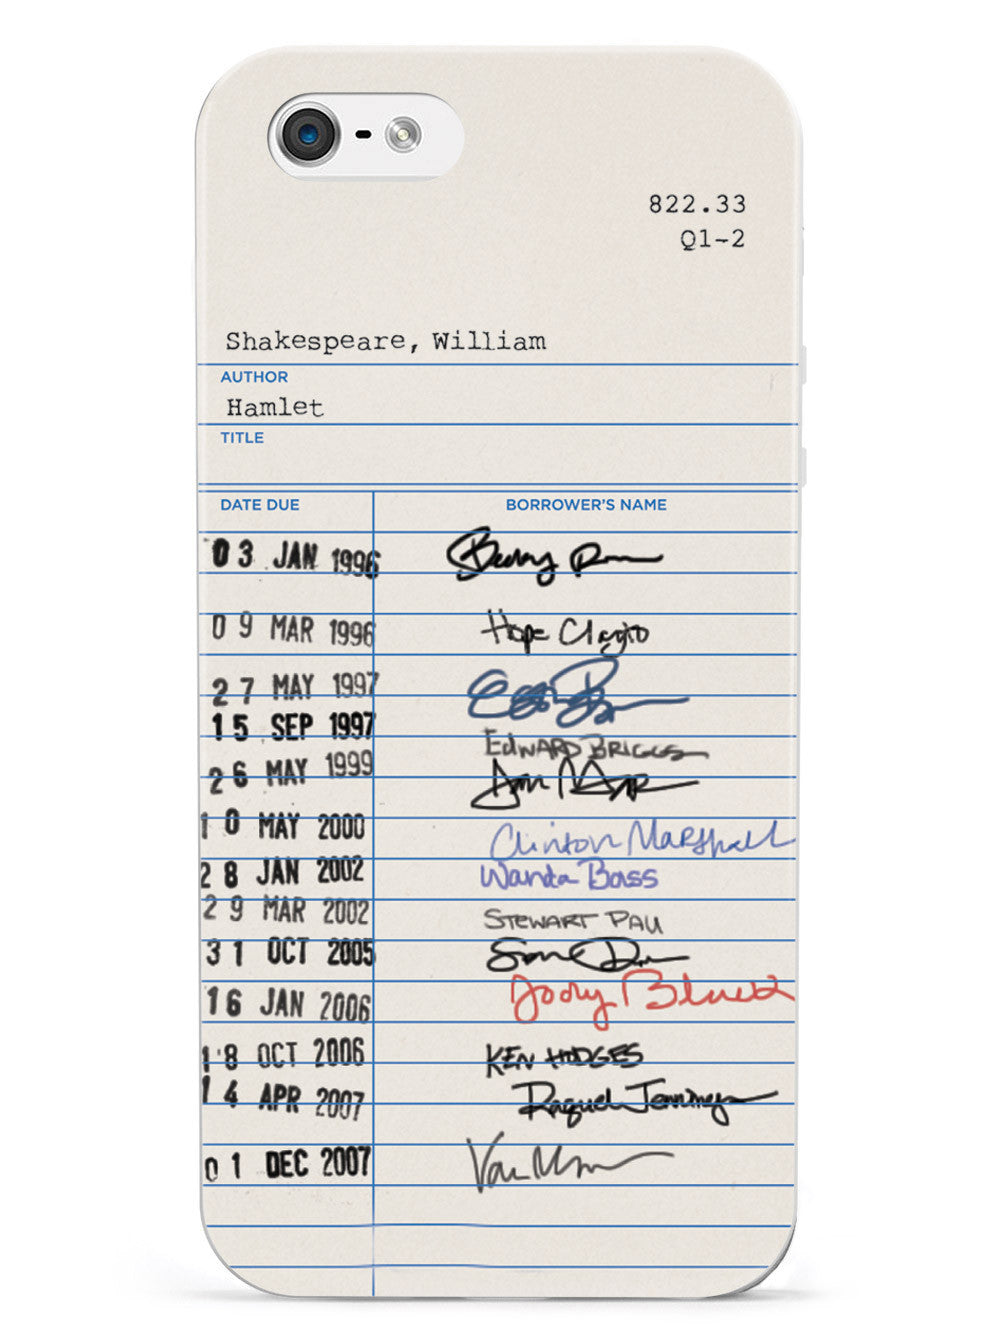 822.33
Q1-2
Shakespeare, William
AUTHOR
Hamlet
TITLE
DATE DUE BORROWER'S NAME
03 JAN 1996
09 MAR 1996 Hope
27 MAY 1997
15 SEP 1997 EDWARD BRIGGS
26 MAY 1999
10 MAY 2000 Clinton Marshall
28 JAN 2002 Wanda Bass
29 MAR 2002 STEWART PAU
31 OCT 2005
16 JAN 2006 Jody
18 OCT 2006 KEN HODGES
14 APR 2007 Raquel Jennings
01 DEC 2007 Van